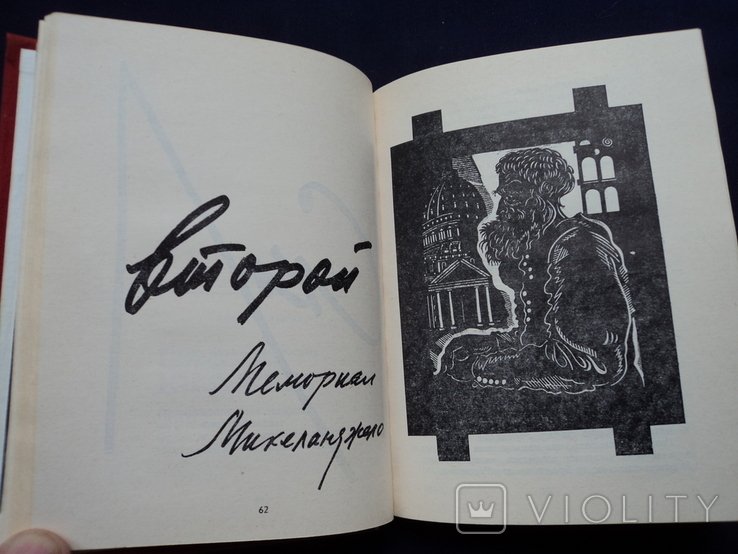 второй
Мемориал
Микеланджело
62
VIOLITY